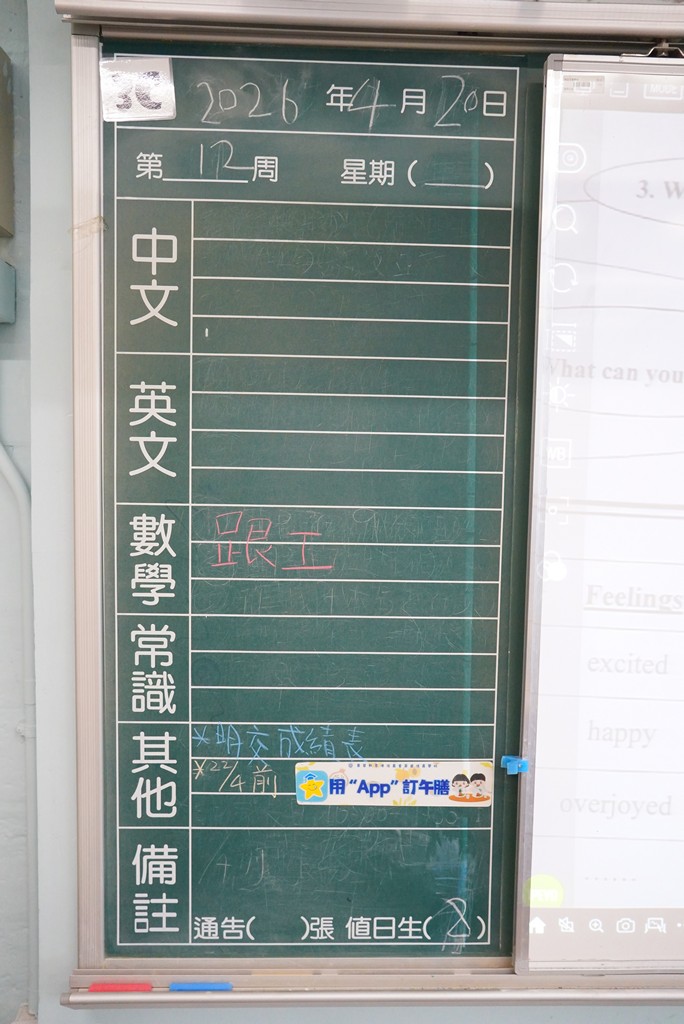 2026 年 4 月 20 日
第 12 周 星期 ( )
中文
英文
數學 跟工
常識
其他 *明交成績表
*22/4前 用“App”訂午膳
備註
通告( )張 值日生( 2 )
3. W
What can you
Feelings
excited
happy
overjoyed
......